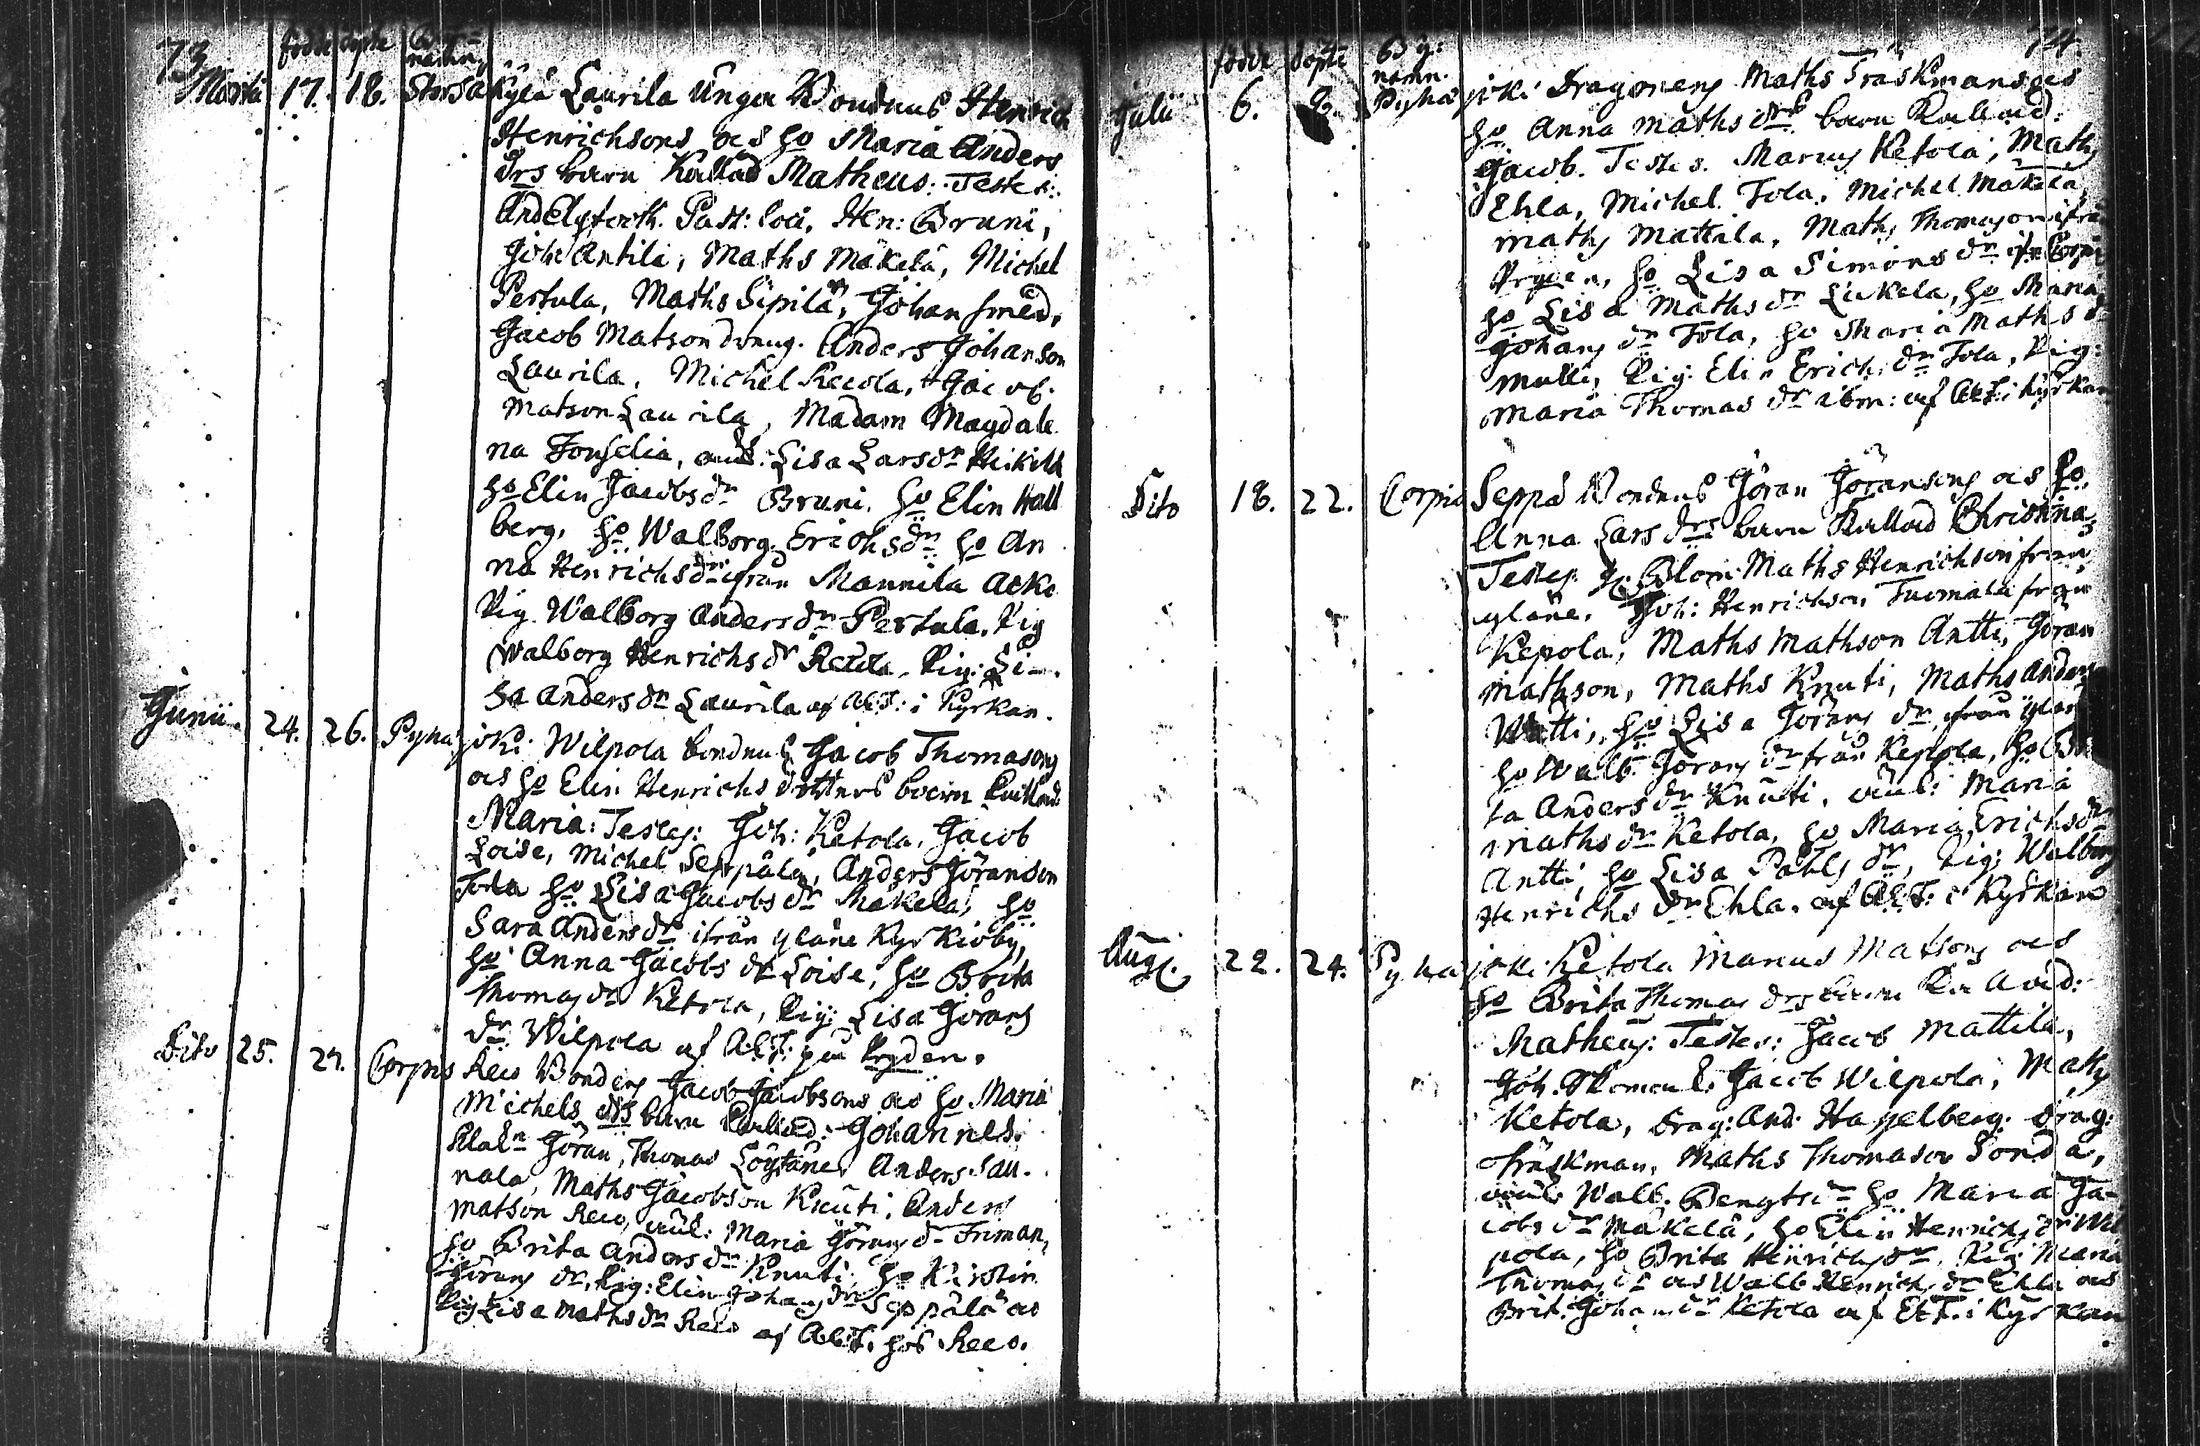 73. födde döpte Byenamn
Martii 17. 18. StorSa Kylä Laurila Unga Bondens Henrich
Henrichsons och ho Maria Anders
drs barn Kallad Matheus: Testes:
Past: loci, Hen: Bruni,
Joh: Antila, Maths Mäkelä, Michel
Pertula, Maths Sipilä, Johan smed,
Jacob Matson dräng. Anders Johanson
Laurila, Michel Recola, Jacob.
Matson Laurila, Madam Magdale
na Forselia, Lisa Larsdr Heikilä
ho Elin Jacobs dr Bruni. ho Elin Hall
berg, ho Walborg Erichsdr ho An
na Henrichsdr ifrån Mannila
Pig Walborg Anders dr Pertula. Pig
Walborg Henrichs dr Pig: Li-
sa Anders dr Laurila af i Kyrkan.
Junii 24. 26. Pyhä joki: Wilpola Jacob Thomasons
och ho Elin Henrichs dotters barn Kallad
Maria: Testes: Joh: Ketola, Jacob
Loise, Michel Seppälä, Anders Göranson
Tola ho Lisa Jacobs dr Mäkelä, ho
Sara Anders dr ifrån yläne Kyrkioby,
ho Anna Jacobs dr Loise, ho Brita
Thomas dr Ketola, Pig: Lisa Görans
dr Wilpola af på Pryden.
Dito 25. 27. Corpis Reco Bondens Jacob Jacobsons och ho Maria
Michels drs barn Kallad: Johannes.
Göran, Thomas Löytäne, Anders Sau-
nala, Maths Jacobson Knuti, Anders
Matson Reco, Maria Görans dr Friman,
ho Brita Anders dr Knuti, ho Kirstin
Görans dr, Pig: Elin Johans dr Seppälä och
Pig Lisa Maths dr Reco af hos Reco.
74.
födde döpte By: namn.
Julii 6. 8. Pyhä joki Dragonens Maths Träskmans och
ho Anna Maths drs barn Kallad:
Jacob. Testes. Marcus Ketola, Maths
Ehla, Michel Tola, Michel Mäkelä,
Maths Mattila, Maths Thomason ifrån
Pryden, ho Lisa Simons dr
ho Lisa Maths dr Liekela, ho Maria
Johans dr Tola, ho Maria Maths dr
Pig: Elin Erichs dr Tola, Pig:
Maria Thomas dr ibm: af i Kyrkan
Dito 18. 22. Corpis Seppä Bondens Göran Göransons och ho.
Anna Lars drs barn Kallad Christina
Testes Blom: Maths Henrichson från
yläne. Joh: Henrichson Tuomala från
Kepola, Maths Mathson Antti, Göran
Mathson, Maths Knuti, Maths Anders
Watti, ho Lisa Görans dr från yläne
ho Walb: Görans dr från Kepola, ho Bri
ta Anders dr Knuti, Maria
Maths dr Ketola, ho Maria Erichsdr
Antti, ho Lisa Påhls dr, Pig: Walborg
Henrichs dr Ehla. af i Kyrkan
Aug. 22. 24. Pyhä joki Ketola Marcus Matsons och
ho Brita Thomas drs barn Kallad:
Matheus: Testes: Jacob Mattila,
Joh. Jacob Wilpola, Maths
Ketola, Drag: And: Haselberg: Drag:
Träskman, Maths Thomason Sonda,
Walb. Bengts dr ho Maria Ja-
cobs dr Mäkelä, ho Elin Henrichs dr Wil
pola, ho Brita Henrichs dr, Pig Maria
Thomas dr och Walb Henrichs dr Ehla och
Brit. Johans dr Ketola af i Kyrkan